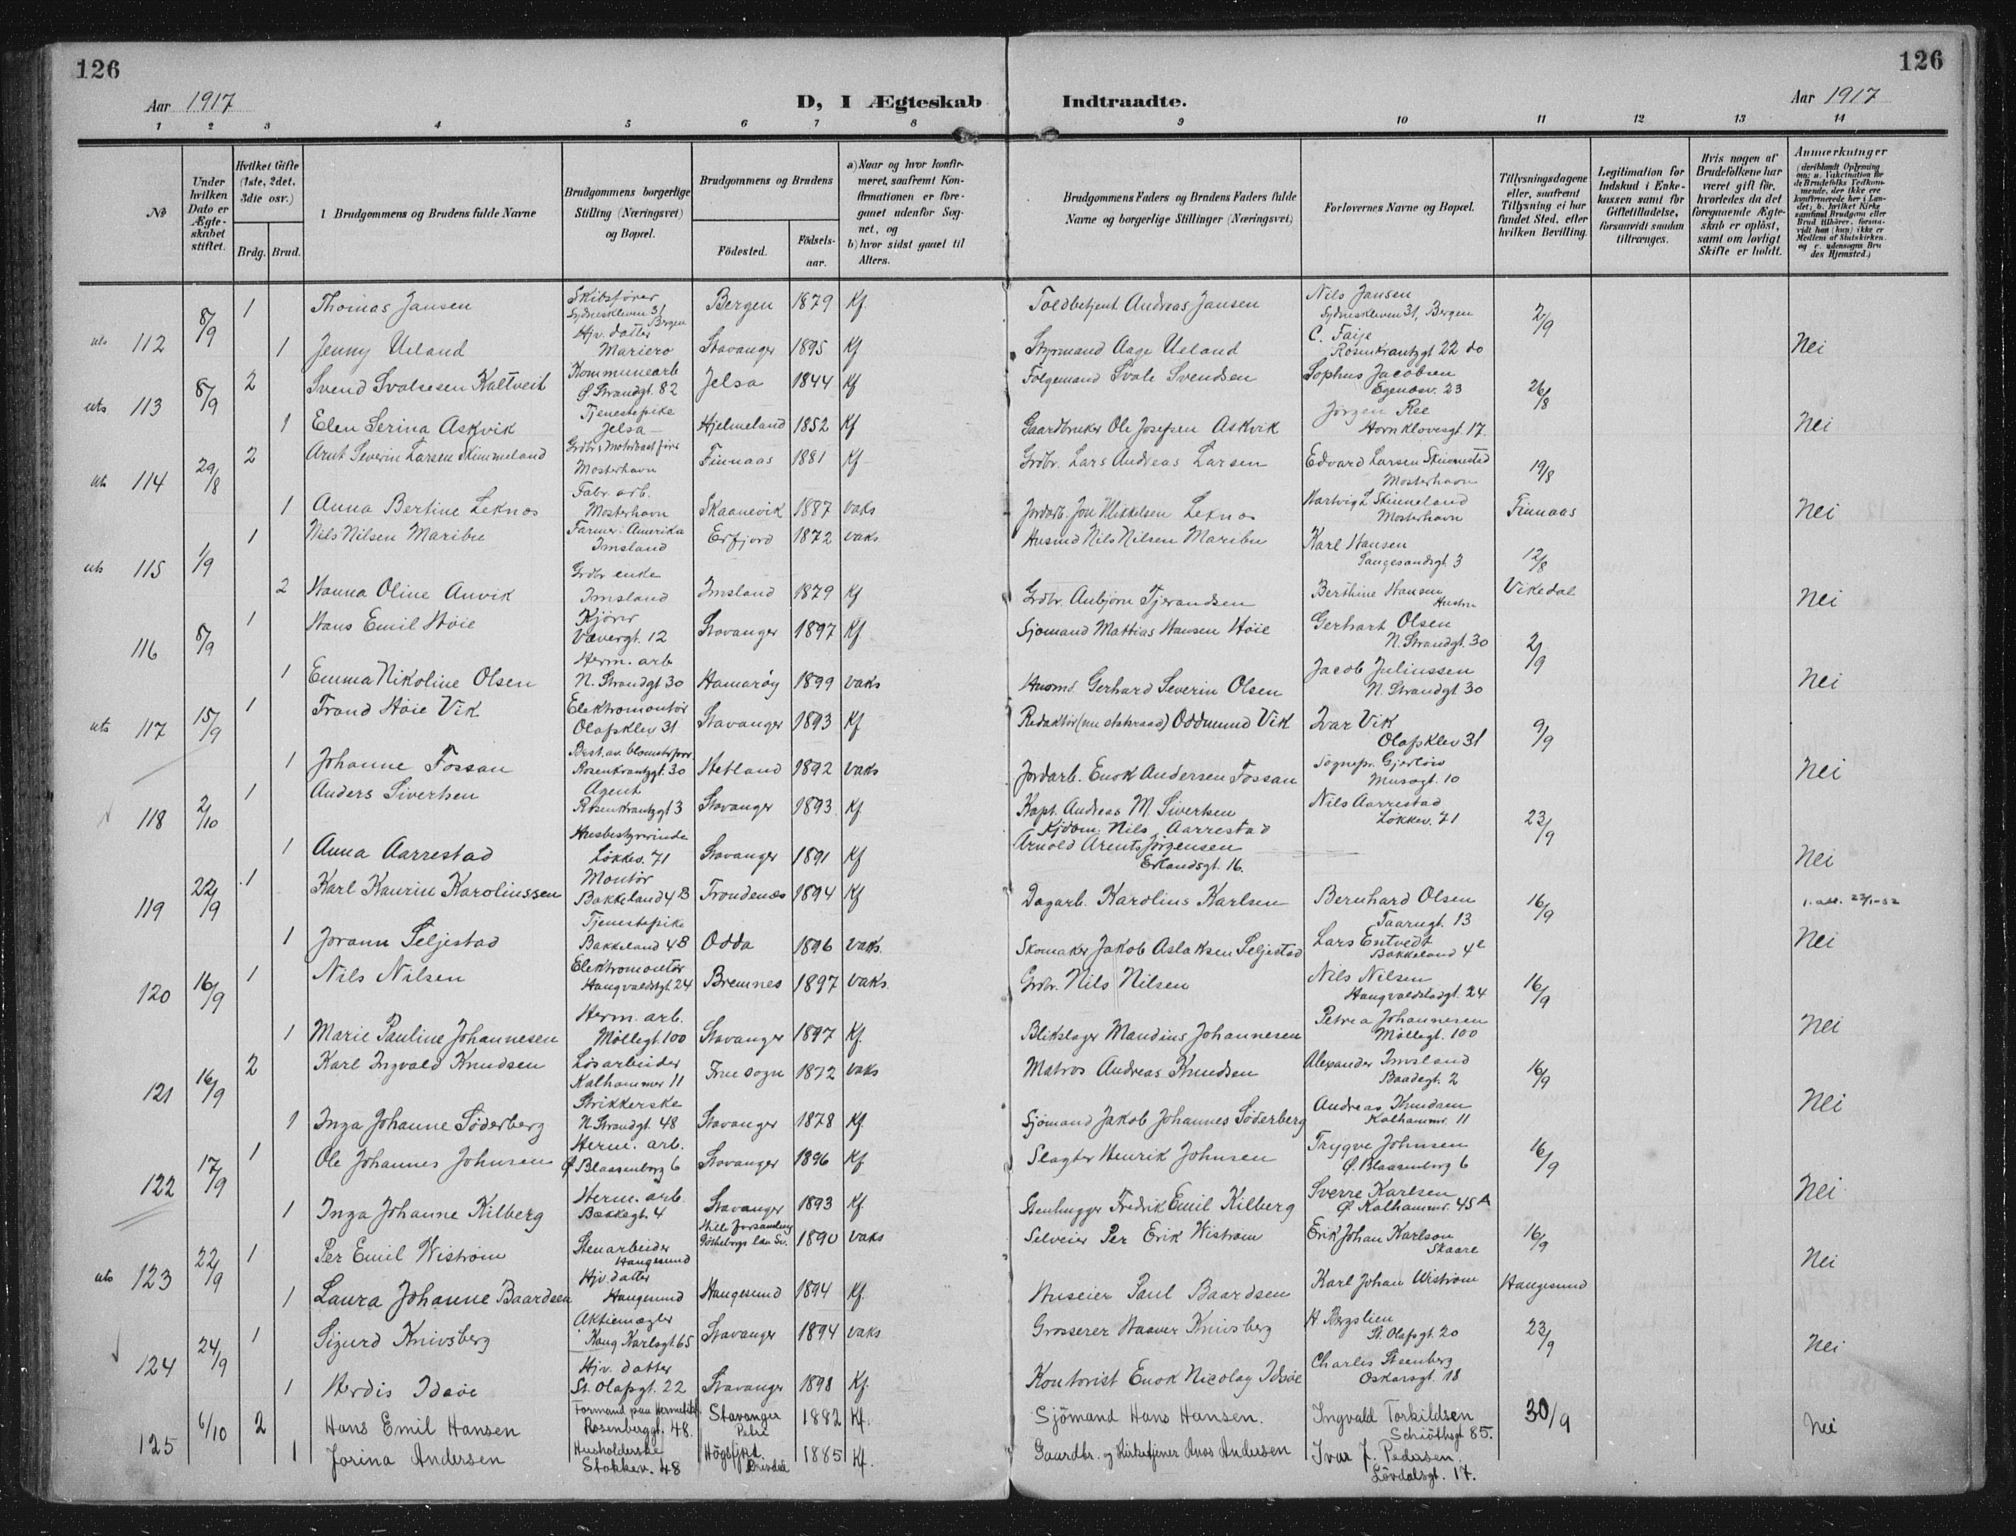 126
126
Aar 1917
D, I Ægteskab Indtraadte.
Aar 1917
1 2 3 4 5 6 7 8 9 10 11 12 13 14
No
Under hvilken Dato er Ægteskabet stiftet.
Hvilket Gifte (1ste, 2det, 3die osv.)
Brdg. Brud.
1 Brudgommens og Brudens fulde Navne
Brudgommens borgerlige Stilling (Næringsvei) og Bopæl.
Brudgommens og Brudens
Fødested.
Fødselsaar.
a) Naar og hvor konfirmeret, saafremt Konfirmationen er foregaaet udenfor Sognet, og
b) hvor sidst gaaet til Alters.
Brudgommens Faders og Brudens Faders fulde Navne og borgerlige Stillinger (Næringsvei)
Forlovernes Navne og Bopæl.
Tillysningsdagene eller, saafremt Tillysning ei har fundet Sted, efter hvilken Bevilling.
Legitimation for Indskud i Enkekassen samt for Giftetilladelse, forsaavidt saadan tiltrænges.
Hvis nogen af Brudefolkene har været gift før, hvorledes da det foregaaende Ægteskab er opløst, samt om lovligt Skifte er holdt.
Anmerkninger
112 8/9 1 Thomas Jansen Skibsfører Sydneskleven 31 Bergen Bergen 1879 Kf. Toldbetjent Andreas Jansen Nils Jansen Sydneskleven 31, Bergen 2/9
1 Jenny Ueland Hjv. datter Mariero Stavanger 1895 Kf Styrmand Aage Ueland C. Faije Rosenkrantzgt 22 do Nei
uts 113 8/9 2 Svend Svalesen Kaltveit Kommunearb Ø Strandgt. 82 Jelsa 1844 Kf Folgemand Svale Svendsen Sophus Jacobsen Egenæsv. 23 26/8
1 Elen Serina Askvik Tjenestepike Jelsa Hjelmeland 1852 Kf Gaardbruker Ole Josefsen Askvik Jørgen Ree Hornklovesgt. 17. Nei
114 29/8 2 Arnt Severin Larsen Skimmeland Mosterhavn Finnaas 1881 Kf Grdbr. Lars Andreas Larsen Edvard Larsen Mosterhavn 19/8
1 Anna Bertine Leknes Fabr. arb. Mosterhavn Skaanevik 1887 vaks Jordarb. Jon Mikkelsen Leknes Hartvig L Skinneland Mosterhavn Finnaas Nei
uts 115 1/9 1 Nils Nilsen Maribu Farmer: Amerika Imsland Erfjord 1872 vaks Husmd Nils Nilsen Maribu Karl Hansen Langesandsgt 3 12/8
2 Hanna Oline Anvik Grdbr enke Imsland Imsland 1879 Kf Grdbr. Anbjørn Tjerandsen Berthine Hansen Hustru Vikedal Nei
116 8/9 1 Hans Emil Høie Kjører Vævergt. 12 Stavanger 1897 Kf. Sjømand Mathias Hansen Høie Gerhart Olsen N. Strandgt. 30 2/9
1 Emma Nikoline Olsen Herm. arb N. Strandgt 30 Hamarøy 1899 vaks Husmd. Gerhard Severin Olsen Jacob Juliussen N. Strandgt 30 Nei
uts 117 15/9 1 Trand Høie Vik Elektromontør Olafsklev 31 Stavanger 1893 Kf Redaktør (nu statsraad) Oddmund Vik Ivar Vik Olafsklev 31 9/9
1 Johanne Fossan Best. av blomsterforr Rosenkrantzgt. 30 Hetland 1892 vaks Jordarb. Enok Andersen Fossan Sognepr. Gjerløw Musegt. 10 Nei
118 2/10 1 Anders Sivertsen Agent Rosenkrantzgt 3 Stavanger 1893 Kf. Kapt. Andreas M. Sivertsen Nils Aarrestad Løkkev. 71 23/9
1 Anna Aarrestad Husbestyrerinde Løkkev. 71 Stavanger 1891 Kf Kjøbm. Nils Aarrestad Arnold Arentz Jørgensen Erlandsgt. 16. Nei
119 22/9 1 Karl Kaurin Karolinssen Montør Bakkeland 4 B Trondenæs 1894 Kf Dagarb. Karolius Karlsen Bernhard Olsen Taarngt. 13 16/9
1 Jorann Seljestad Tjenestepike Bakkeland 4 B Odda 1896 vaks. Skomaker Jakob Aslaksen Seljestad Lars Entvedt Bakkeland 4c Nei
120 16/9 1 Nils Nilsen Elektromontør Haugvaldstgt. 24 Bremnes 1897 vaks. Grdbr. Nils Nilsen Nils Nilsen Haugvaldstadgt. 24 16/9
1 Marie Pauline Johannesen Herm. arb. Møllegt. 100 Stavanger 1897 Kf. Blikslager Mandius Johannesen Petrea Johannesen Møllegt. 100 Nei
121 16/9 2 Karl Ingvald Knudsen Løsarbeider Kalhammer 11 Frue sogn 1872 vaks Matros Andreas Knudsen Alexander Imsland Baadegt. 2 16/9
1 Inga Johanne Söderberg Strikkerske N. Strandgt. 48 Stavanger 1878 Kf. Sjømand Jakob Johannes Söderberg Andreas Knudsen Kalhammr. 11 Nei
122 17/9 1 Ole Johannes Johnsen Herm. arb. Ø Blaasenborg 6 Stavanger 1896 Kf. Slagter Henrik Johnsen Trygve Johnsen Ø. Blaasenborg 6 16/9
1 Inga Johanne Kilberg Herm. arb. Bakkegt. 4 Stavanger 1893 Kf. Stenhugger Fredrik Emil Kilberg Sverre Karlsen Ø Kalhammr. 45 A Nei
uts 123 22/9 1 Per Emil Wistrøm Stenarbeider Haugesund Gøteborgs län Sv. 1890 vaks Selveier Per Erik Wistrøm Erik Johan Karlson Skaare 16/9
1 Laura Johanne Baardsen Hjv. datter Haugesund Haugesund 1894 Kf. Huseier Paul Baardsen Karl Johan Wistrøm Haugesund Nei
124 24/9 1 Sigurd Knivsberg Aktiemægler Kong Karlsgt. 65 Stavanger 1894 vaks. Grosserer Haaver Knivsberg H Bergslien St. Olafsgt. 20 23/9
1 Herdis Idsøe Hjv. datter St. Olafsgt. 22 Stavanger 1898 Kf. Kontorist Enok Nicolay Idsøe Charles Steenberg Oskarsgt. 18 Nei
125 6/10 2 Hans Emil Hansen Formand paa Hermetikf. Rosenberggt. 48. Stavanger Petri 1882 Kf. Sjömand Hans Hansen. Ingvald Torkildsen Schiöthsgt 85. 30/9
1 Jorina Andersen Husholderske Stokkev. 48 Högsfjord 1885 Kf. Gaardbr. og Kirketjener Anas Andersen Ivar J. Pedersen. Lövdalsgt. 17. Nei